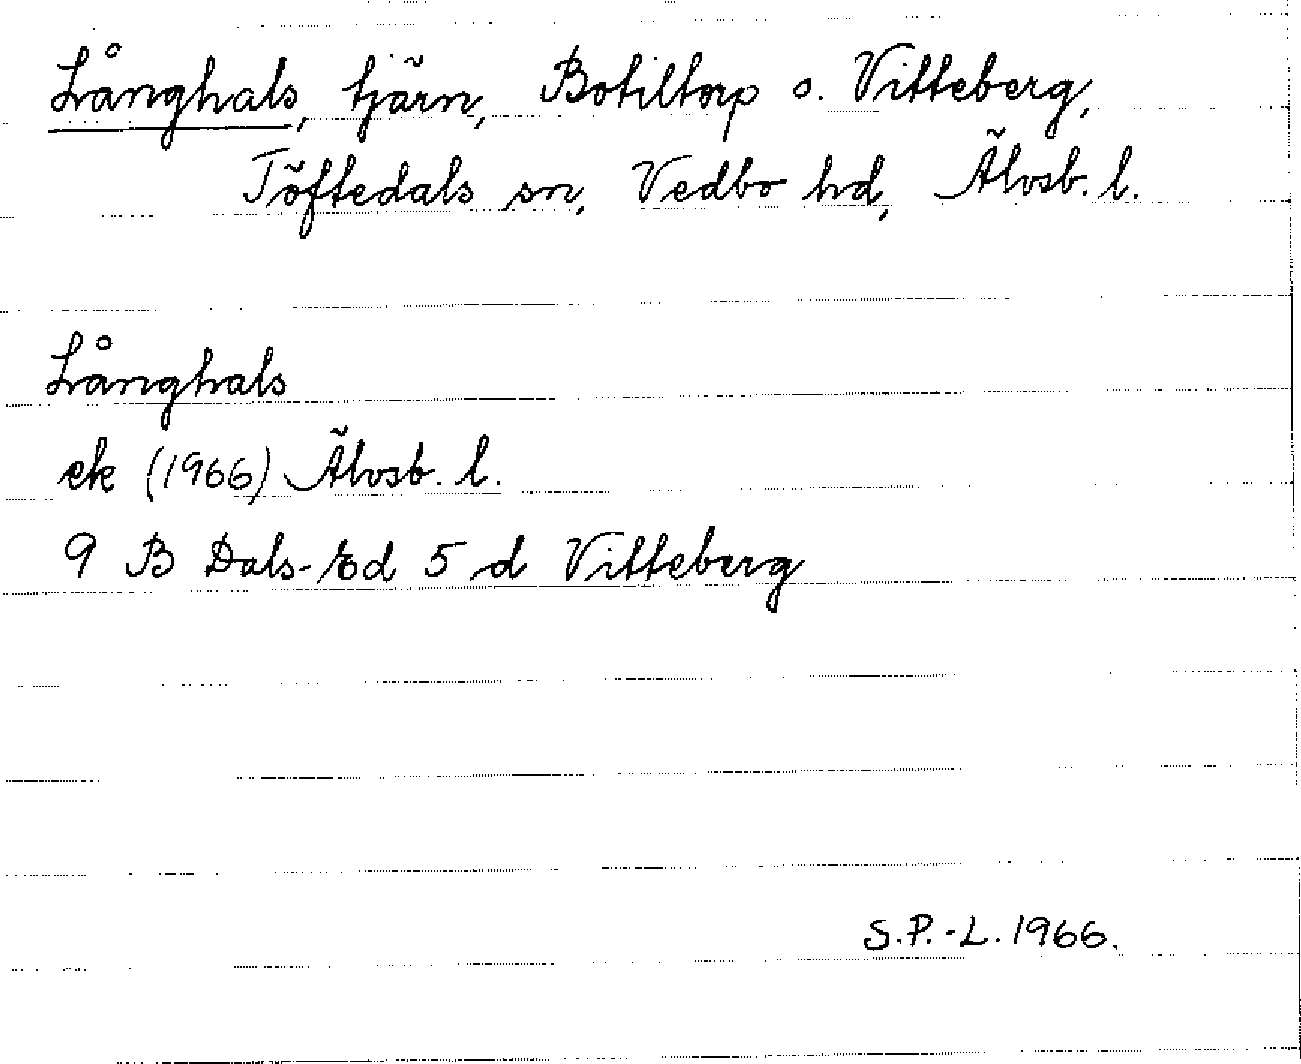 Långhals, tjärn, Botiltorp o. Vitteberg,
Töftedals sn, Vedbo hd, Älvsb. l.
Långhals
ek (1966) Älvsb. l.
9 B Dals-Ed 5 d Vitteberg
S.P.-L. 1966.